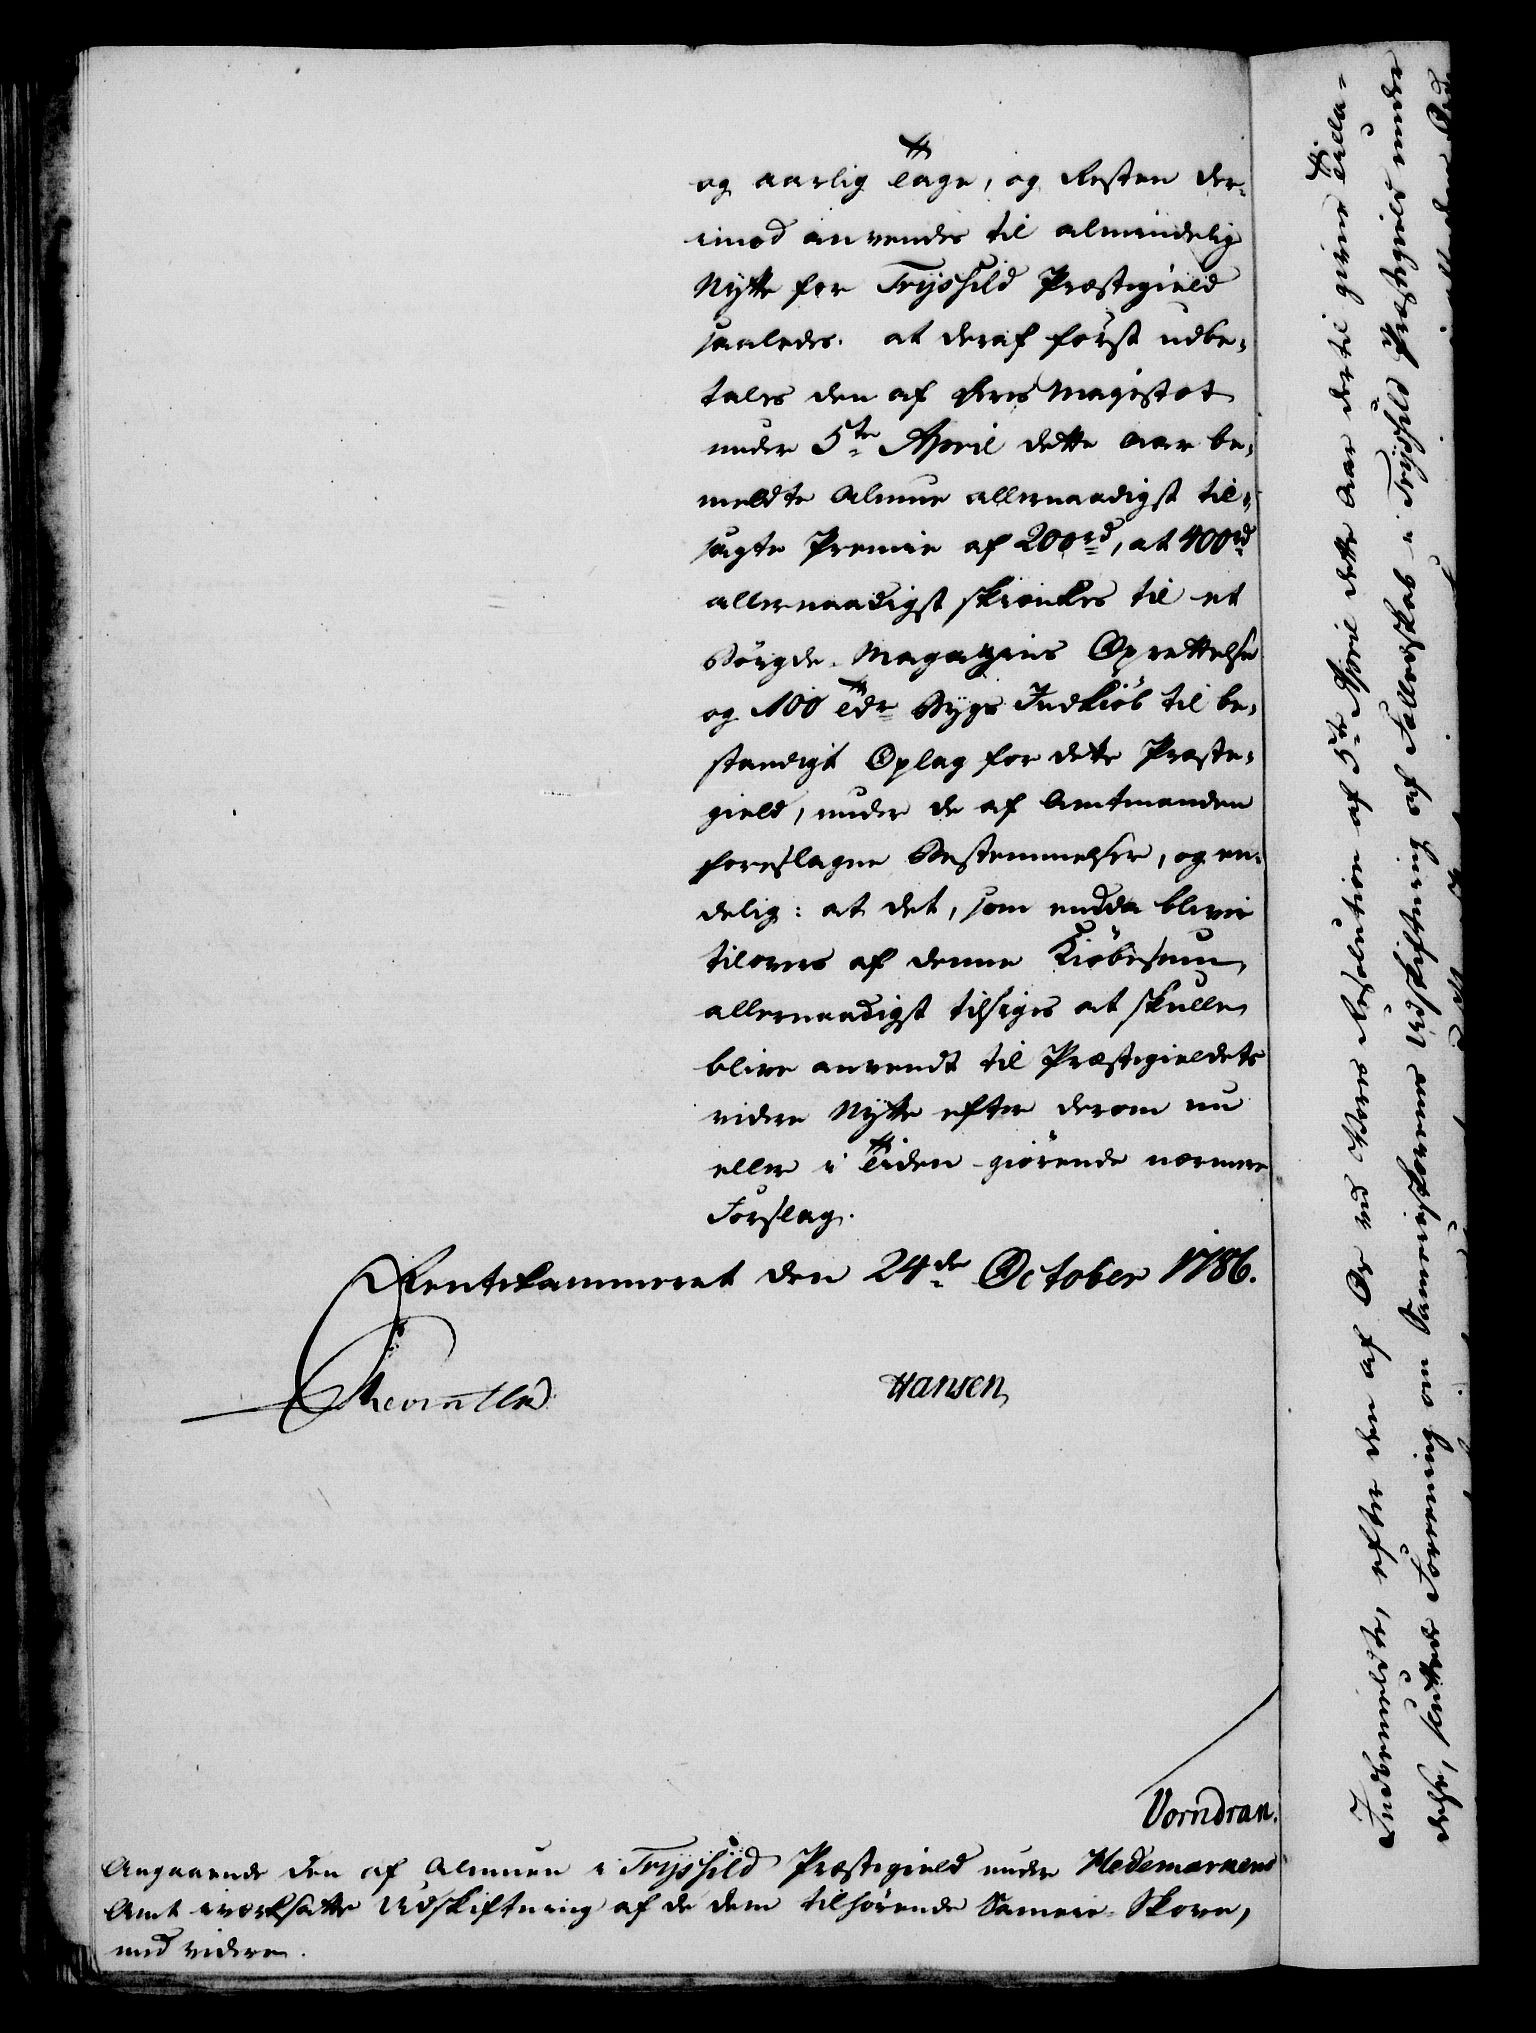 og aarlig Tage, og Resten der-
imod anvendes til almindelig
Nytte for Trysild Præstegield
saaledes: at deraf først udbe-
tales den af Deres Majestæt
under 5te April dette Aar be-
meldte Almue allernaadigst til-
sagte Premie af 200rd, at 400rd
allernaadigst skienkes til et
Bøygde-Magazins Oprettelse
og 100 Tdr Bygs Indkiøb til be-
standigt Oplag for dette Præste-
gield, under de af Amtmanden
foreslagne Bestemmelser, og en-
delig: at det, som endda bliver
tilovers af denne Kiøbesum,
allernaadigst tilsiges at skulle
blive anvendt til Præstegieldets
videre Nytte efter derom nu
eller i Tiden giørende nærmere
Forslag.
Rentekammeret den 24de October 1786.
Hansen
Vorndran.
Angaaende den af Almuen i Trysild Præstegield under Hedemarkens
Amt iværksatte Udskiftning af de dem tilhørende Sameie-Skove,
med videre.
Indbemeldte, efter den af Os ved Vores Resolution af 5te April dette Aar dertil givne Tilla-
delse, sluttede Forening om Sameieskovenes Udskiftning af Fælledskab i Trysild Præstegield under